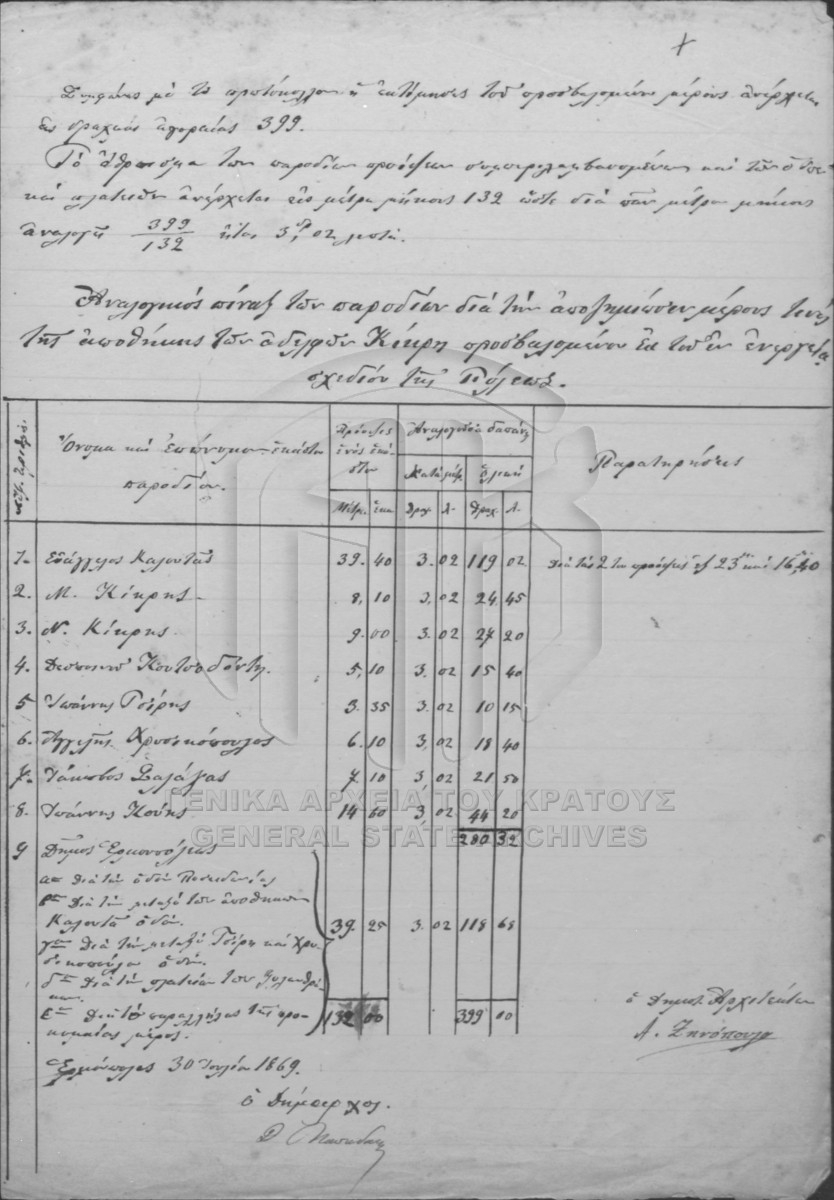 Συμφώνως με το πρωτόκολλον ἢ ἐκτίμησις τοῦ προσβαλομένου μέρους ἀνέρχεται
εἰς δραχμὰς ἀγοραίας 399.
Τὸ ἄθροισμα των παροδίων προσόψεων συμπεριλαμβανομένων καὶ τῶν ὁδῶν
καὶ πλατειῶν ἀνέρχεται εἰς μέτρα μήκους 132 ὥστε διὰ πᾶν μέτρον μήκους
ἀναλογεῖ 399/132 ἤτοι 3, 02 λεπτά.
Ἀναλογικὸς πίναξ των παροδίων διὰ τὴν ἀποζημίωσιν μέρους τινὸς
τῆς ἀποθήκης των ἀδελφῶν Κίκρη προσβαλομένου ἐκ τοῦ ἐν ἐνεργείᾳ
σχεδίου τῆς Πόλεως.
Ὄνομα καὶ ἐπώνυμον ἑκάστου παροδίου. Πρόσοψις ἑνὸς ἑκάστου Ἀναλογοῦσα δαπάνη Παρατηρήσεις
Κατὰ μέτρ. ὁλική
Μέτρ. ἑκα. Δραχ. Λ. Δραχ. Λ.
1. Εὐάγγελος Καλουτᾶς 39. 40 3. 02 119 02 Διὰ τὰς 2 του προσόψεις ἐξ 23 καὶ 16,40
2. Μ. Κίκρης 8, 10 3, 02 24, 45
3. Ν. Κίκρης 9. 00 3. 02 27 20
4. Δεσποινοῦ 5, 10 3. 02 15 40
5 Ἰωάννης Τσίρης 3. 35 3. 02 10 15
6. Χρυσικόπουλος 6. 10 3, 02 18 40
7. Ἰάκωβος 7, 10 3, 02 21 50
8. Ἰωάννης Κούης 14 60 3, 02 44 20
280 32
9 Δῆμος Ἑρμουπόλεως
αον Διὰ τὴν ὁδὸν Ποσειδωνίας
βον Διὰ τὴν μεταξὺ των ἀποθηκῶν
Καλουτᾶ ὁδόν. 39. 25 3. 02 118 68
γον Διὰ τὴν μεταξὺ Τσίρη καὶ Χρυ-
σικοπούλου ὁδόν.
δον Διὰ τὴν πλατεῖαν των
εον Διὰ τὸ παραλλήλως τῆς προ-
κυμαίας μέρος. 132 00 399 00
ὁ Δημοτ. Ἀρχιτέκτων
Α. Ζηνόπουλος
Ἑρμούπολις 30 Ἰουλίου 1869.
ὁ Δήμαρχος.
ΓΕΝΙΚΑ ΑΡΧΕΙΑ ΤΟΥ ΚΡΑΤΟΥΣ
GENERAL STATE ARCHIVES